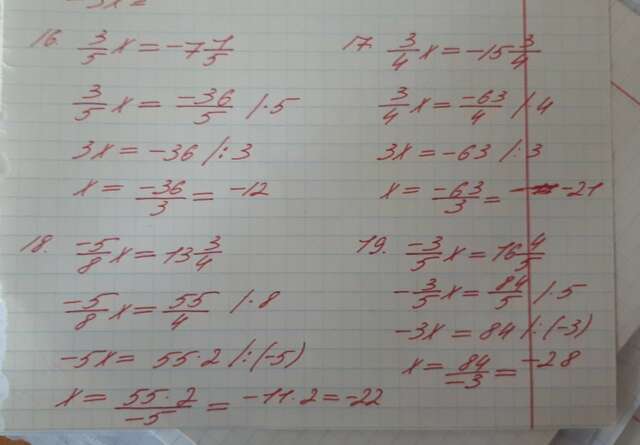 -3x =
16. 3/5 x = -7 1/5
3/5 x = -36/5 /·5
3x = -36 /:3
x = -36/3 = -12
17. 3/4 x = -15 3/4
3/4 x = -63/4 /·4
3x = -63 /:3
x = -63/3 = -21
18. -5/8 x = 13 3/4
-5/8 x = 55/4 /·8
-5x = 55·2 /:(-5)
x = 55·2/-5 = -11·2 = -22
19. -3/5 x = 16 4/5
-3/5 x = 84/5 /·5
-3x = 84 /:(-3)
x = 84/-3 = -28